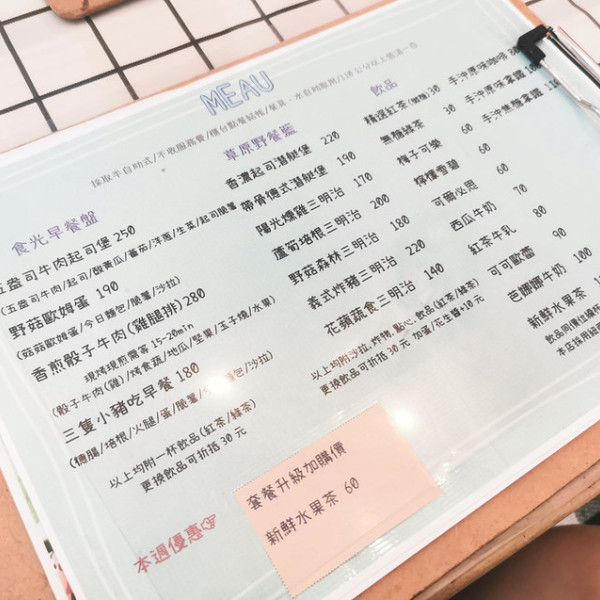 MEAU
採取半自助式/不收服務費/櫃台點餐結帳/餐具、水自助取用/118公分以上低消一份
食光早餐盤
五盎司牛肉起司堡 250
(五盎司牛肉/起司/酸黃瓜/番茄/洋蔥/生菜/起司脆薯
野菇歐姆蛋 190
(菇菇歐姆蛋/今日麵包/脆薯/沙拉)
香煎骰子牛肉(雞腿排)280
現烤現煎需等15-20min
(骰子牛肉(雞)/烤食蔬/地瓜/堅果/玉子燒/水果)
三隻小豬吃早餐 180
(德腸/培根/火腿/蛋/脆薯/今日麵包/沙拉)
以上均附一杯飲品(紅茶/綠茶)
更換飲品可折抵30元
草原野餐籃
香濃起司潛艇堡 220
帶骨德式潛艇堡 190
陽光燻雞三明治 170
蘆筍培根三明治 200
野菇森林三明治 180
義式炸豬三明治 220
花蘋蔬食三明治 140
以上均附沙拉,炸物,點心,飲品(紅茶/綠茶)
更換飲品可折抵30元 加蛋/花生醬+10元
飲品
精選紅茶(微糖) 30
無糖綠茶 30
梅子可樂 60
檸檬雪碧 60
可爾必思 60
西瓜牛奶 70
紅茶牛乳 80
可可歐蕾 90
芭娜娜牛奶 100
新鮮水果茶
飲品同價位
本店採用
手沖原味咖啡
手沖原味拿鐵
手沖焦糖拿鐵
本週優惠
套餐升級加購價
新鮮水果茶 60